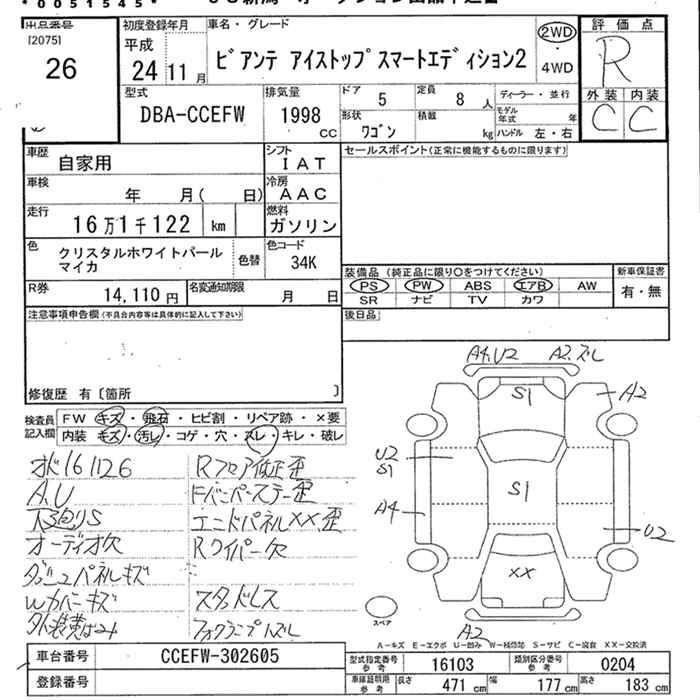 *0051545*
出品番号
[2075]
26
初度登録年月
平成
24年 11月
車名・グレード
ビアンテ アイストップスマートエディション2
2WD
・
4WD
評価点
R
外装 内装
C C
型式
DBA-CCEFW
排気量
1998 cc
ドア 5
定員 8 人
形状 ワゴン
積載 kg
ディーラー・並行
モデル年式 年
ハンドル 左・右
車歴 自家用
シフト IAT
車検 年 月( 日)
冷房 AAC
走行 16万1千122 km
燃料 ガソリン
色 クリスタルホワイトパール
マイカ
色替
色コード 34K
R券 14,110 円
名変通知期限 月 日
セールスポイント(正常に機能するものに限ります)
装備品(純正品に限り○をつけてください)
PS PW ABS エアB AW
SR ナビ TV カワ
新車保証書
有・無
後日品
注意事項申告欄(不具合内容等は具体的に記入して下さい)
修復歴 有〔箇所 〕
検査員
記入欄
FW キズ・飛石・ヒビ割・リペア跡・×要
内装 キズ・汚レ・コゲ・穴・スレ・キレ・破レ
A.U
オーディオ欠
ダッシュパネルキズ
Wカバーキズ
Rフロア修正歪
エンドパネルXX.歪
Rワイパー欠
スタッドレス
フォグランプズレ
A4.U2 A2.ズレ
S1
A2
U2
S1
S1
A4
U2
XX
A2
スペア
A-キズ E-エクボ U-凹み W-補修跡 S-サビ C-腐食 XX-交換済
車台番号 CCEFW-302605
登録番号
型式指定番号
参考
16103
類別区分番号
参考
0204
車庫証明用
参考
長さ 471 cm
幅 177 cm
高さ 183 cm